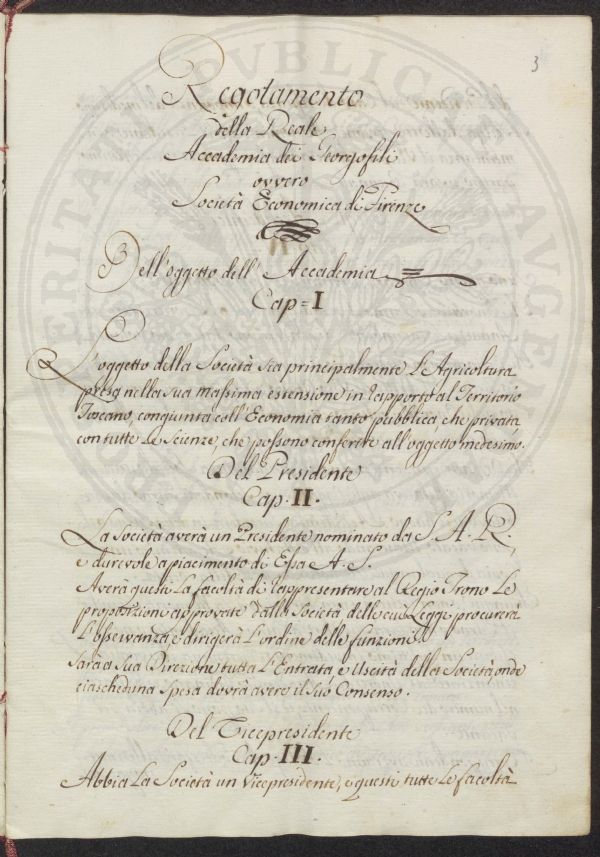 3
Regolamento
della Reale
Accademia dei Georgofili
ovvero
Società Economica di Firenze
Dell'oggetto dell'Accademia
Cap = I
L'oggetto della Società sia principalmente l'Agricoltura
presa nella sua massima estensione in rapporto al Territorio
Toscano, congiunta coll'Economia tanto pubblica, che privata,
con tutte le Scienze, che possono conferire all'oggetto medesimo.
Del Presidente
Cap. II.
La Società averà un Presidente nominato da S. A. R.,
e durevole a piacimento di Essa A. S.
Averà questi la facoltà di rappresentare al Regio Trono le
proposizioni approvate dalla Società delle cui Leggi procurerà
l'osservanza, e dirigerà l'ordine delle funzioni.
Sarà a sua Direzione tutta l'Entrata, e Uscita della Società, onde
ciascheduna spesa dovrà avere il suo Consenso.
Del Vicepresidente
Cap. III.
Abbia la Società un vicepresidente, e questi tutte le facoltà
VERITATI PVBLICAE AVGE